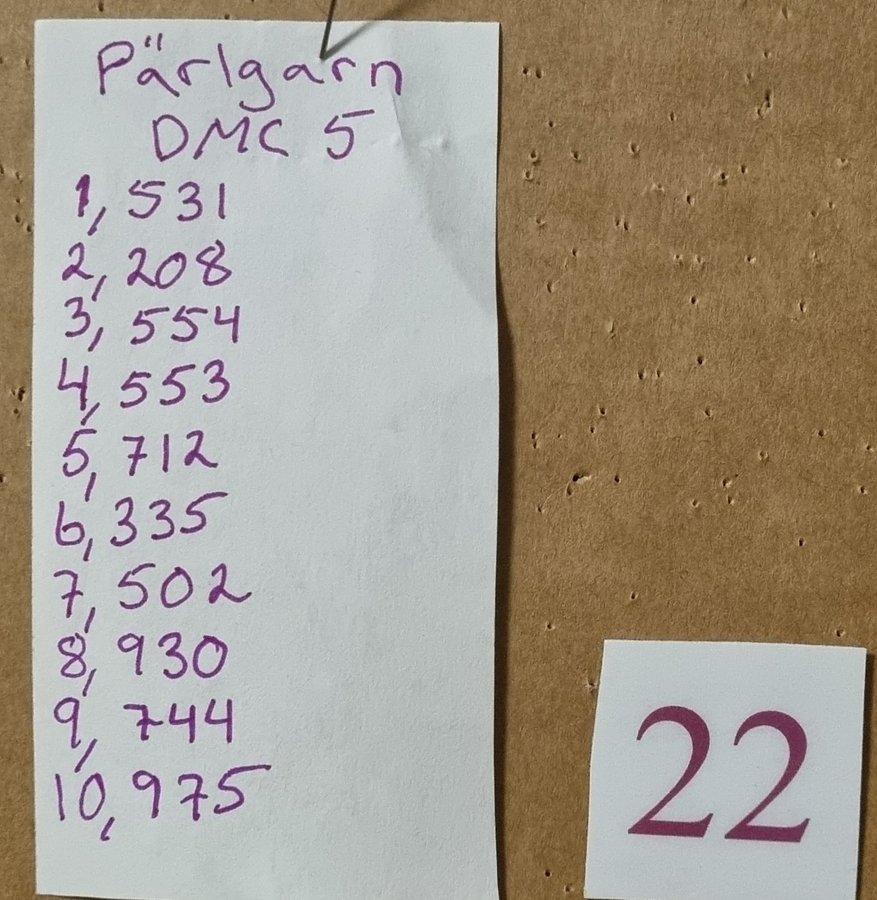 Pärlgarn
DMC 5
1, 531
2, 208
3, 554
4, 553
5, 712
6, 335
7, 502
8, 930
9, 744
10, 975
22